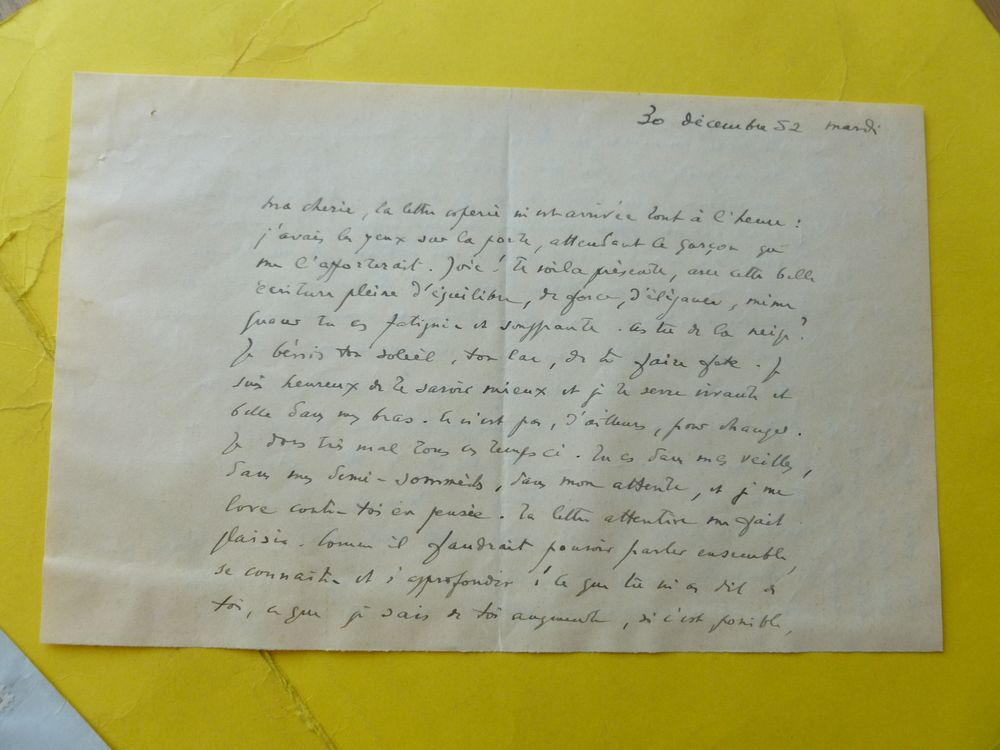 30 décembre 52 mardi
ma cherie, la lettre esperée m'est arrivée tout à l'heure :
j'avais les yeux sur la porte, attendant le garçon qui
me l'apporterait. Joie ! te voilà présente, avec cette belle
écriture pleine d'équilibre, de force, d'élégance, même
quand tu es fatiguée et souffrante. as tu de la neige ?
Je bénis ton soleil, ton lac, de te faire fête. Je
suis heureux de te savoir mieux et je te serre vivante et
belle dans mes bras. ce n'est pas, d'ailleurs, pour changer.
Je dors très mal tous ces temps ci. Tu es dans mes veilles,
dans mes demi-sommeils, dans mon attente, et je me
love contre toi en pensée. Ta lettre attentive me fait
plaisir. Comme il faudrait pouvoir parler ensemble,
se connaître et s'approfondir ! Ce que tu m'as dit de
toi, ce que je sais de toi augmente, si c'est possible,